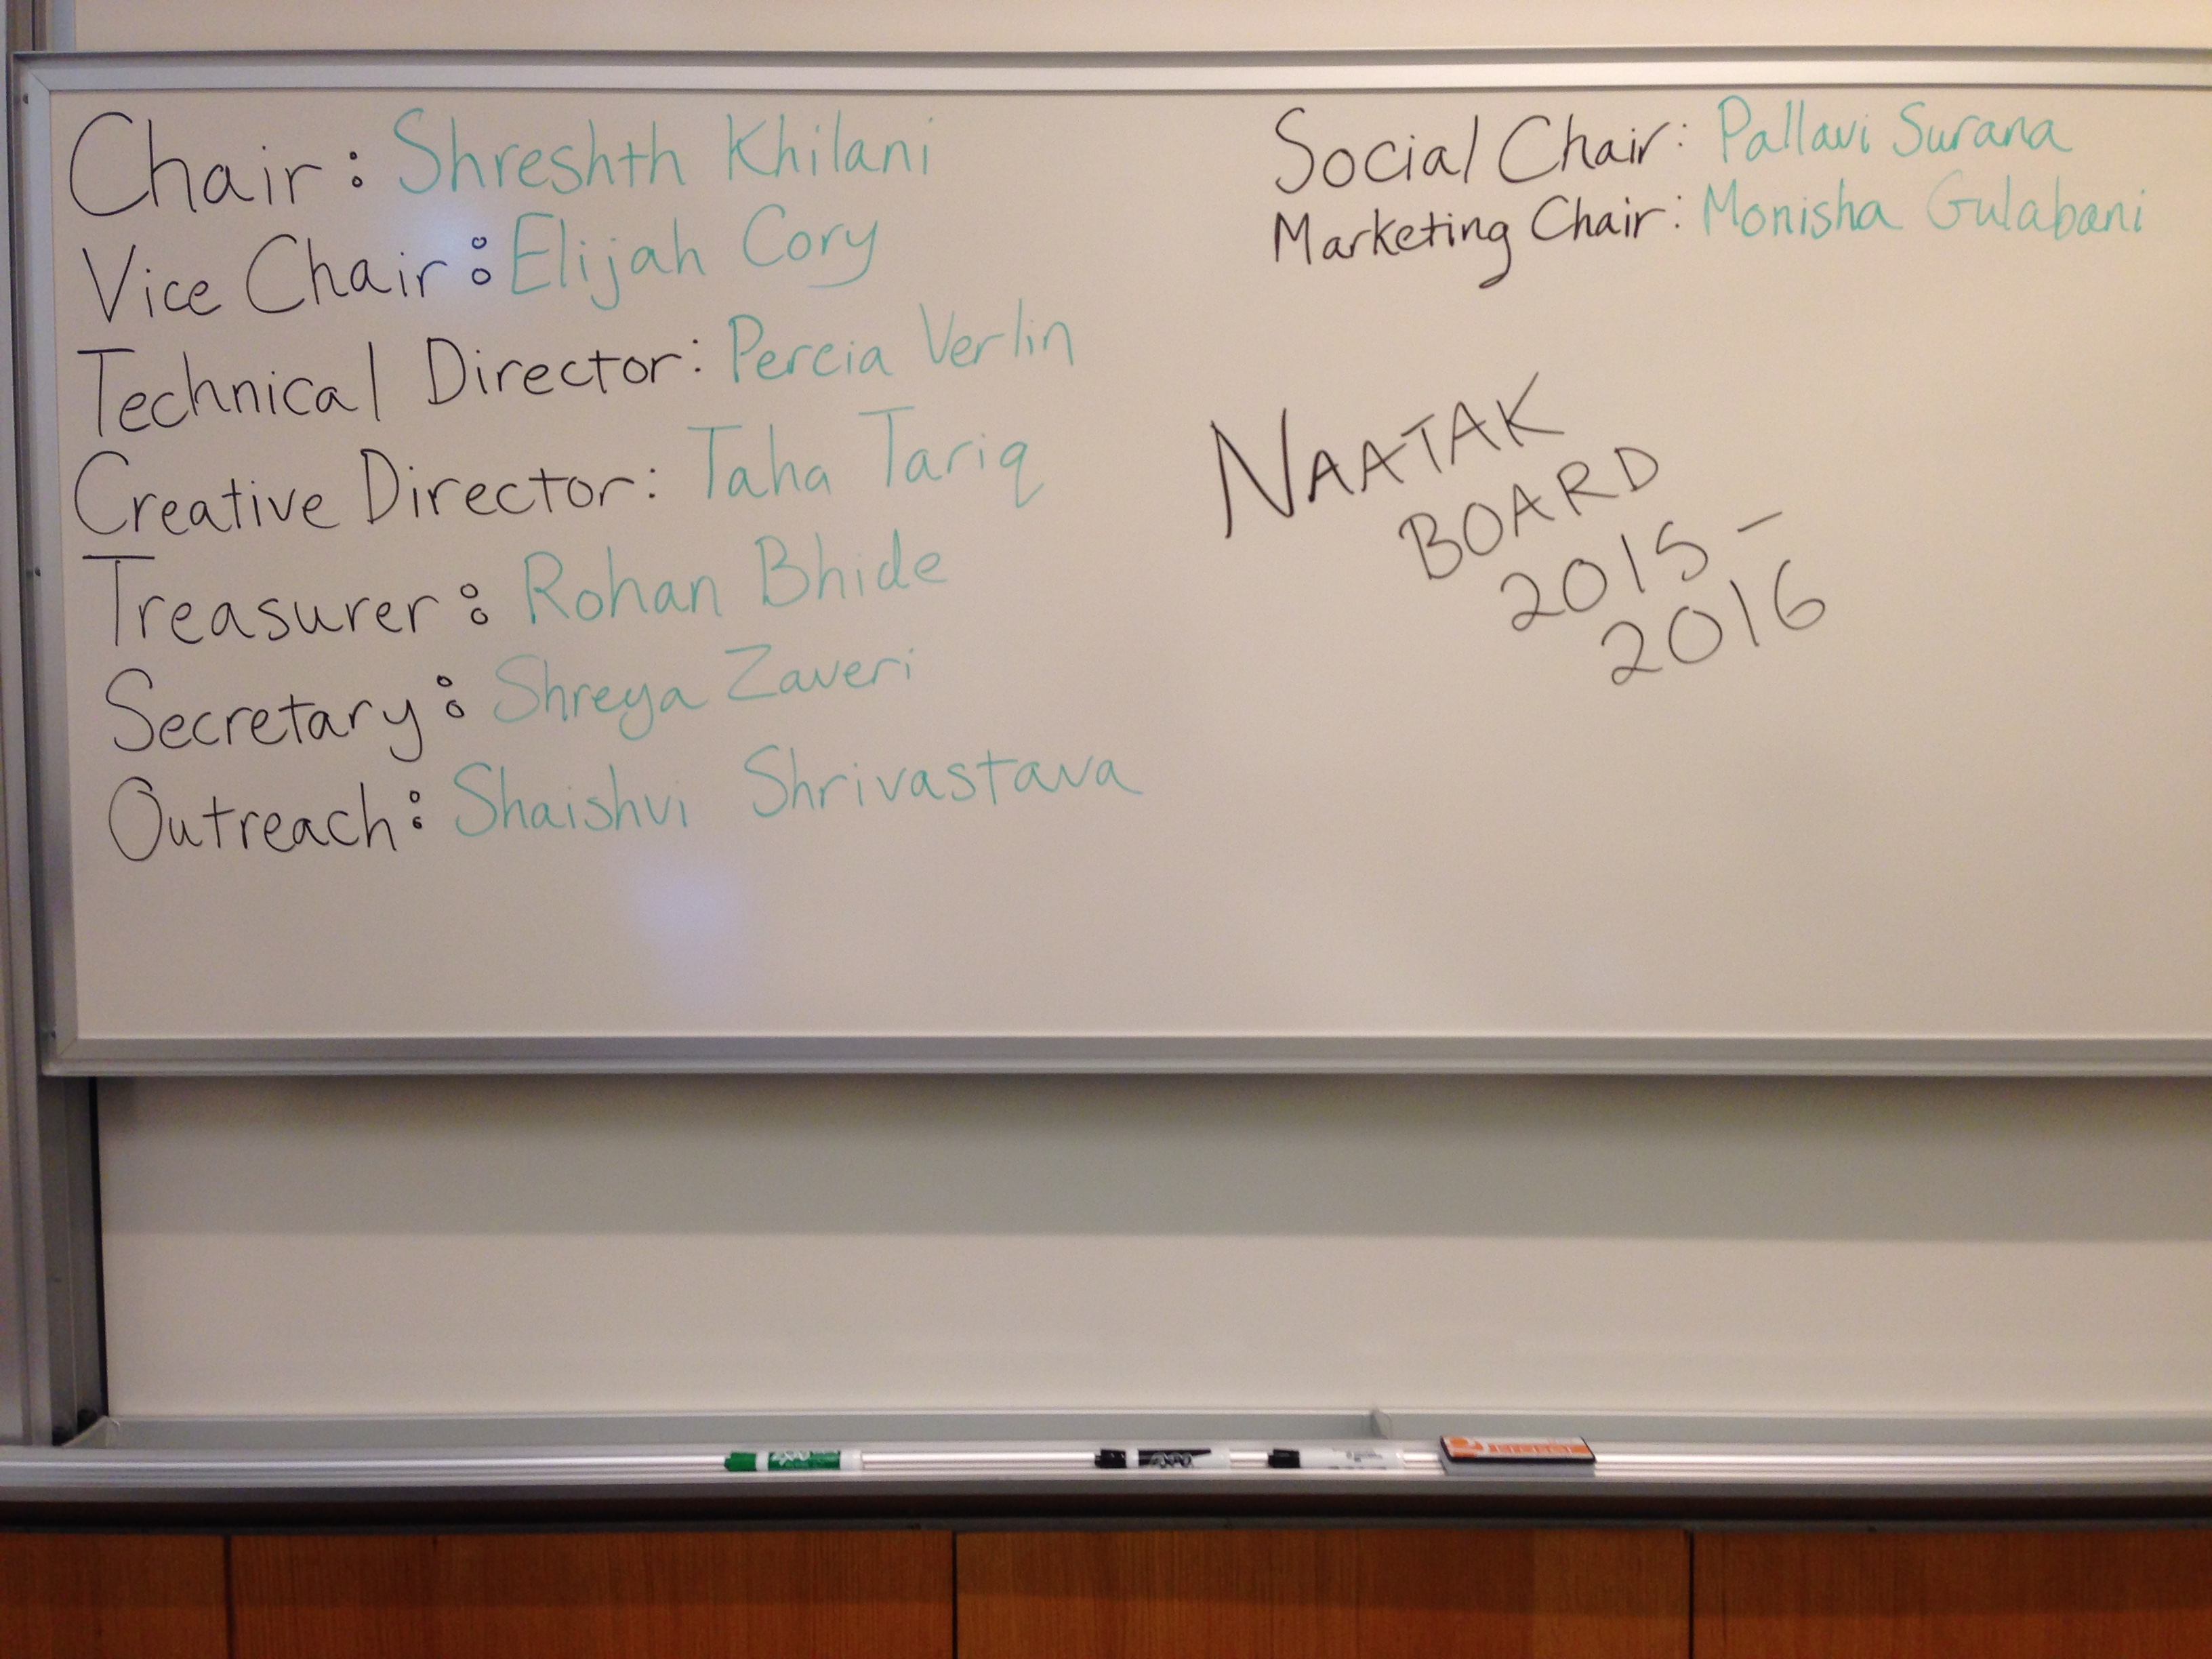 Chair: Shreshth Khilani
Vice Chair: Elijah Cory
Technical Director: Percia Verlin
Creative Director: Taha Tariq
Treasurer: Rohan Bhide
Secretary: Shreya Zaveri
Outreach: Shaishvi Shrivastava
Social Chair: Pallavi Surana
Marketing Chair: Monisha Gulabani
NAATAK
BOARD
2015-
2016